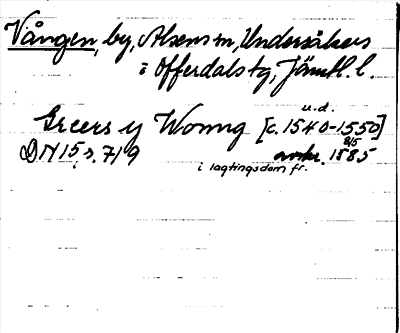 Vången, by, Alsens sn, Undersåkers
i Offerdals tg, Jämtl. l.
u.d.
Greers y Wonng [c. 1540-1550]
DN 15, s. 719 8/5 1585
i lagtingsdom fr.